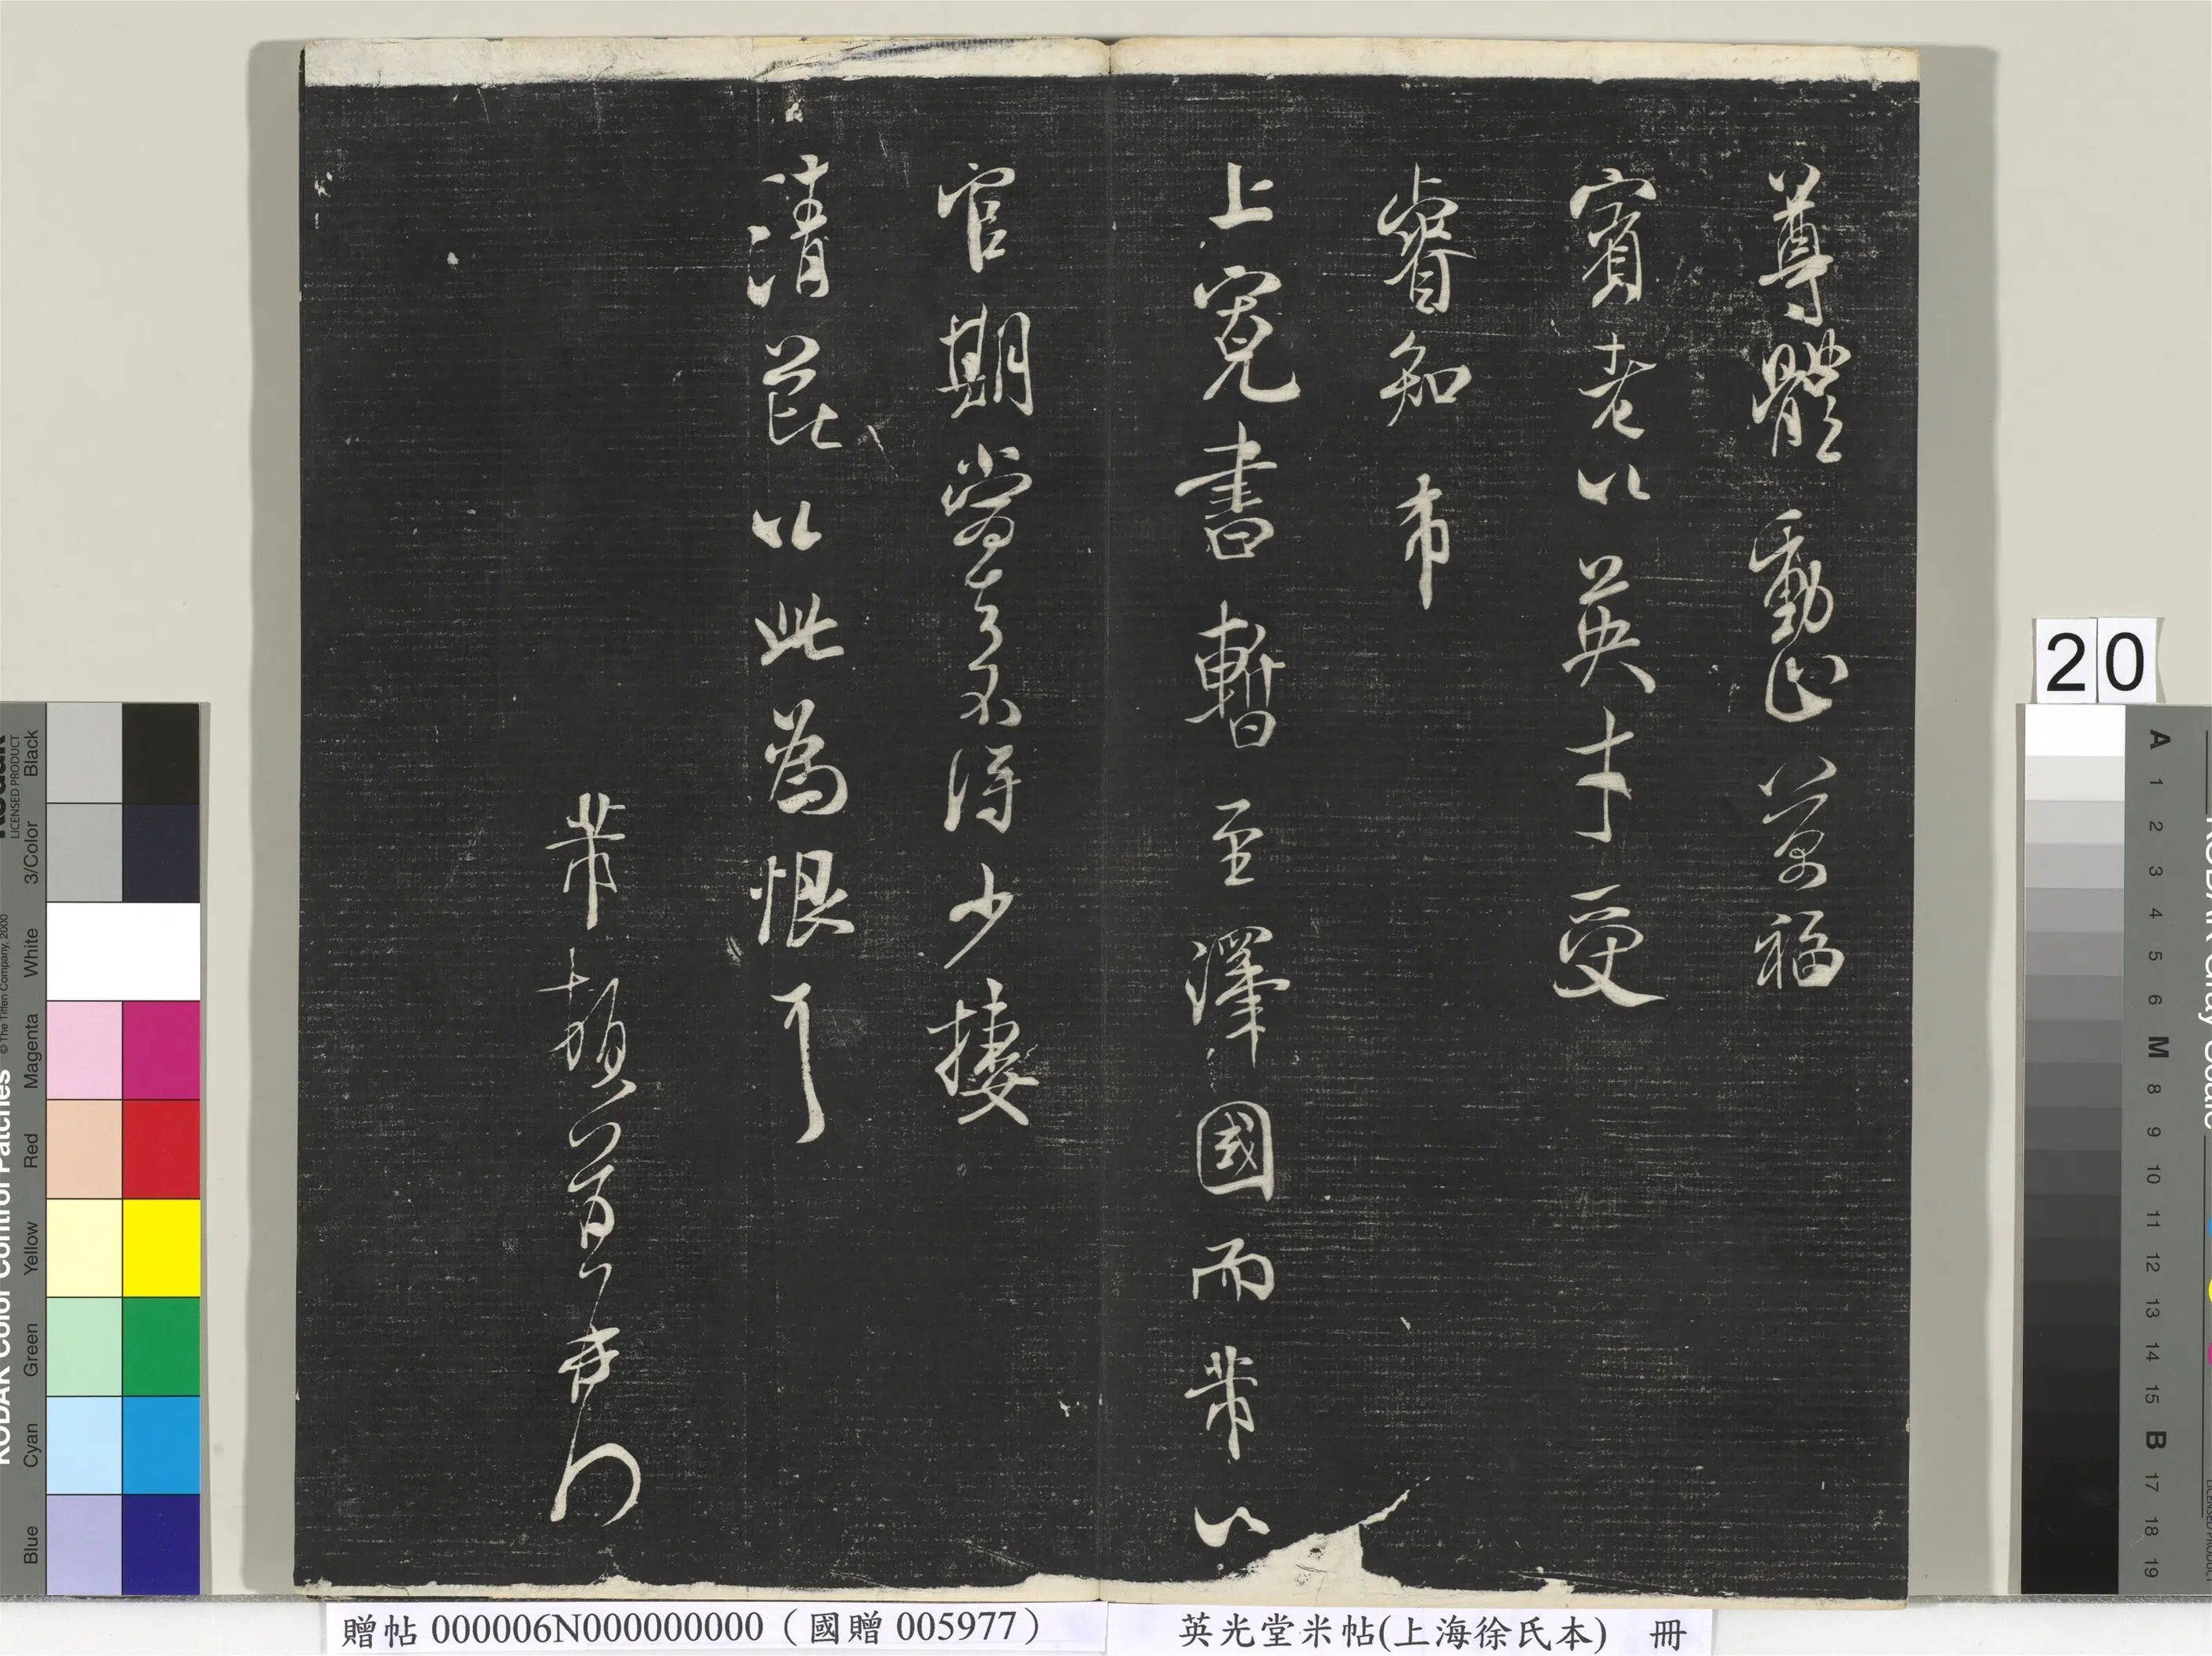 尊體動止萬福
賓老以英才受
睿知芾
上書暫至澤國而芾以
官期當去不得少接
清芘以此為恨耳
芾頓首再拜
20
贈帖 000006N000000000 (國贈 005977)
英光堂米帖(上海徐氏本) 冊
KODAK Color Control Patches
© The Tiffen Company, 2000
LICENSED PRODUCT
Black
3/Color
White
Magenta
Red
Yellow
Green
Cyan
Blue
A 1 2 3 4 5 6 M 8 9 10 11 12 13 14 15 B 17 18 19